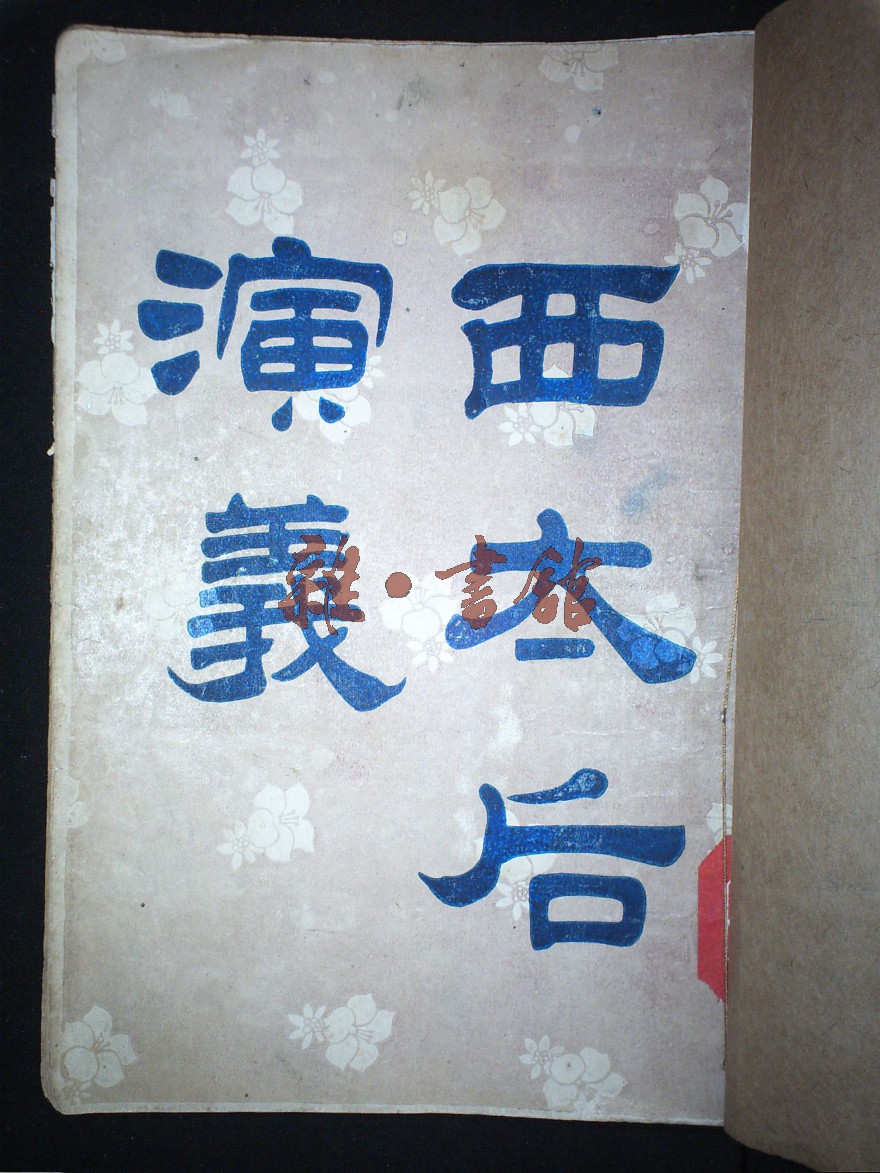 西太后
演義
雜·書館